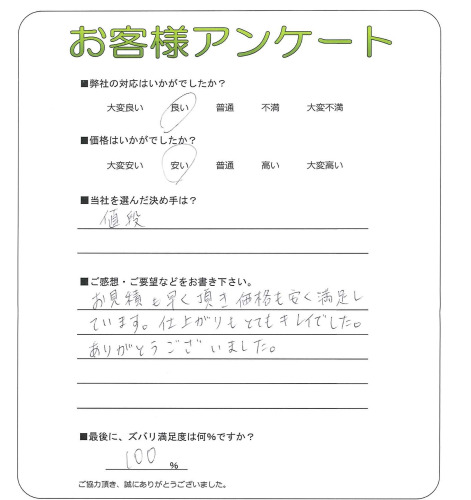 お客様アンケート
■弊社の対応はいかがでしたか？
大変良い 良い 普通 不満 大変不満
■価格はいかがでしたか？
大変安い 安い 普通 高い 大変高い
■当社を選んだ決め手は？
値段
■ご感想・ご要望などをお書き下さい。
お見積も早く頂き価格も安く満足し
ています。仕上がりもとてもキレイでした。
ありがとうございました。
■最後に、ズバリ満足度は何%ですか？
100 %
ご協力頂き、誠にありがとうございました。